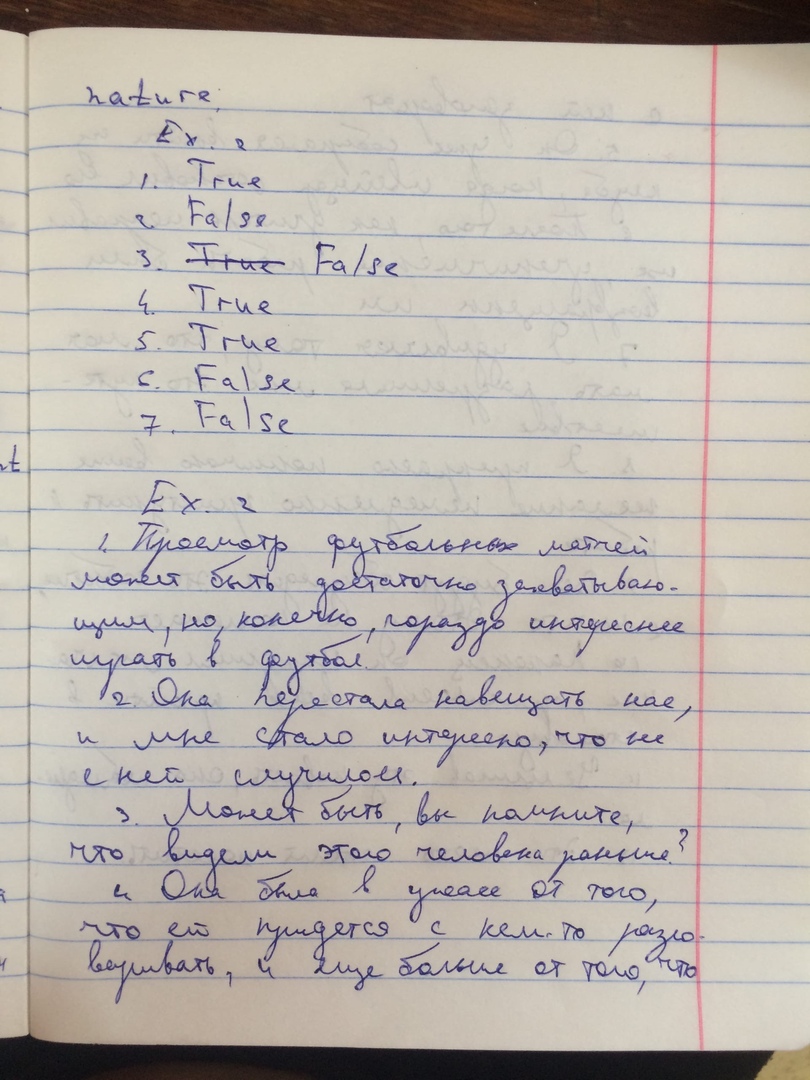 nature.
Ex. 2
1. True
2. False
3. True False
4. True
5. True
6. False
7. False
Ex. 2
1. Просмотр футбольных матчей
может быть достаточно захватываю-
щим, но, конечно, гораздо интереснее
играть в футбол.
2. Она перестала навещать нас,
и мне стало интересно, что же
с ней случилось.
3. Может быть, вы помните,
что видели этого человека раньше?
4. Она была в ужасе от того,
что ей придется с кем-то разго-
варивать, и еще больше от того, что
nt